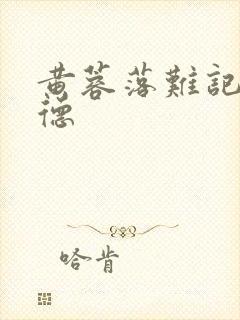 黄蓉落難記
德
哈肯